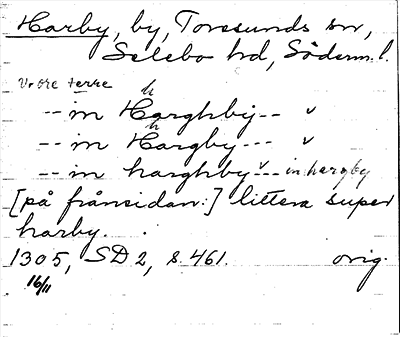 Harby, by, Toresunds sn,
Selebo hd, Söderm. l.
v. ore terre
-- in Harghby -- v
h
-- in Hargby --- v
h
-- in harghby v--- in hargby
[på frånsidan:] littera super
harby.
1305, SD 2, s. 461. orig.
16/11